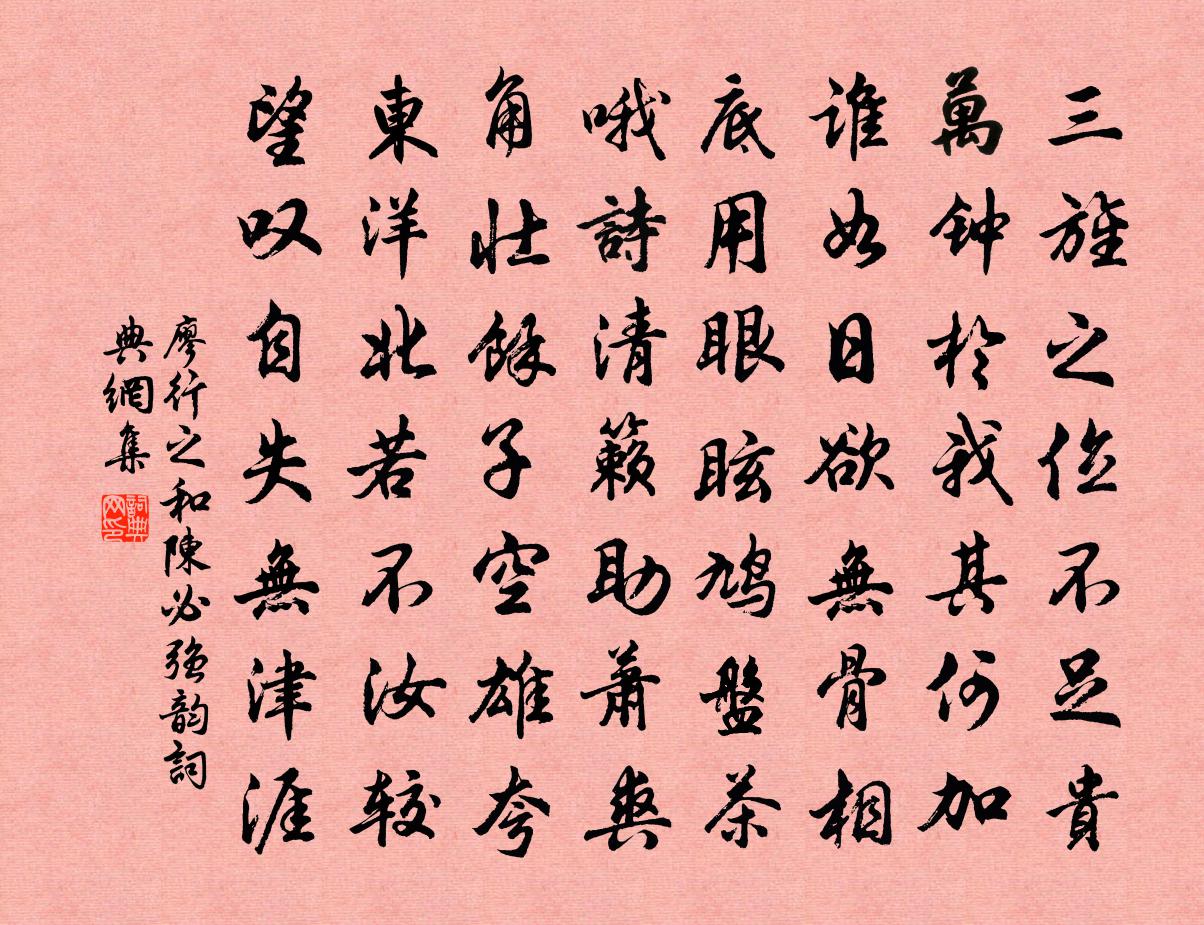 三旌之位不足貴
萬钟於我其何加
谁如日欲無骨相
底用眼眩鸠盤茶
哦詩清籟助萧爽
角壮餘子空雄夸
東洋北若不汝较
望叹自失無津涯
廖行之和陳必强韵詞
典網集
詞典
网印